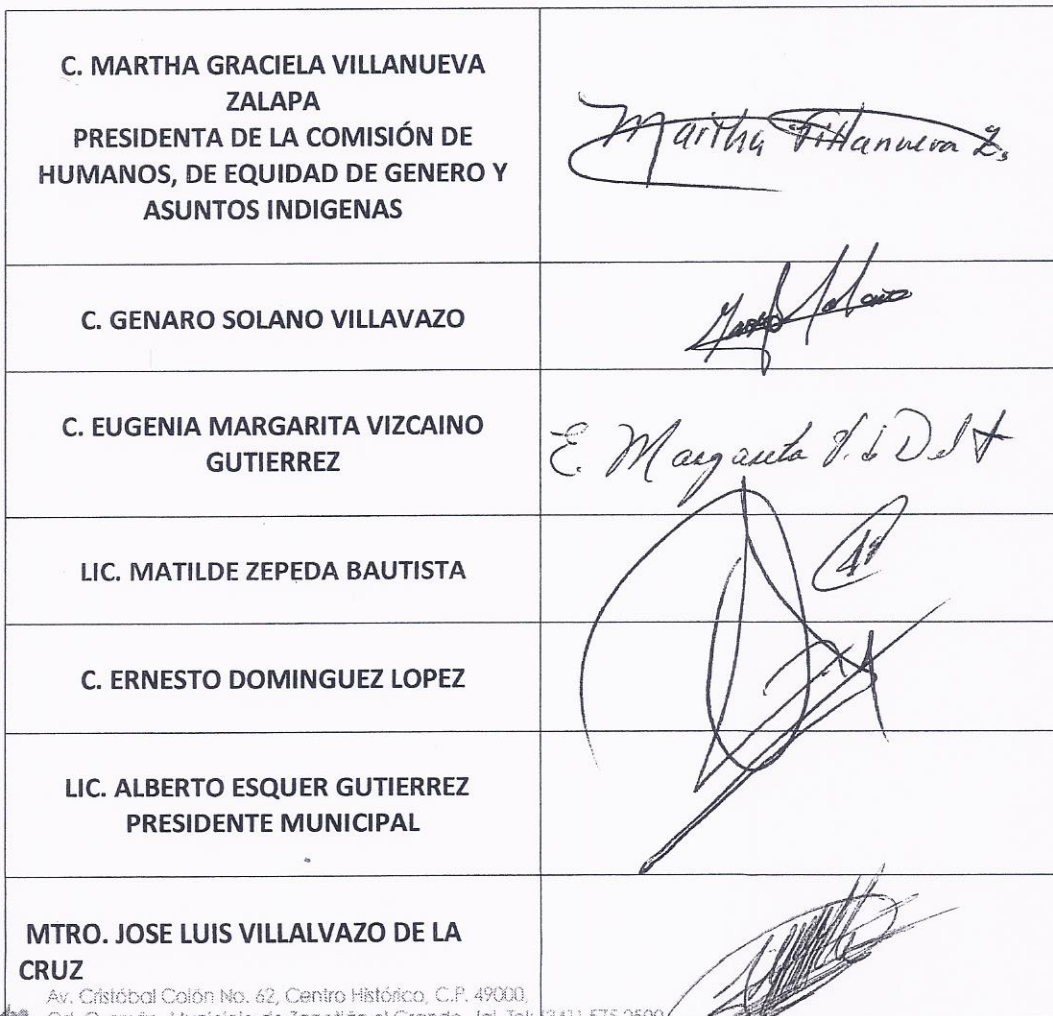 C. MARTHA GRACIELA VILLANUEVA
ZALAPA
PRESIDENTA DE LA COMISIÓN DE
HUMANOS, DE EQUIDAD DE GENERO Y
ASUNTOS INDIGENAS
Martha Villanueva Z.
C. GENARO SOLANO VILLAVAZO
C. EUGENIA MARGARITA VIZCAINO
GUTIERREZ
E. Margarita
LIC. MATILDE ZEPEDA BAUTISTA
C. ERNESTO DOMINGUEZ LOPEZ
LIC. ALBERTO ESQUER GUTIERREZ
PRESIDENTE MUNICIPAL
MTRO. JOSE LUIS VILLALVAZO DE LA
CRUZ
Av. Cristóbal Colón No. 62, Centro Histórico, C.P. 49000,